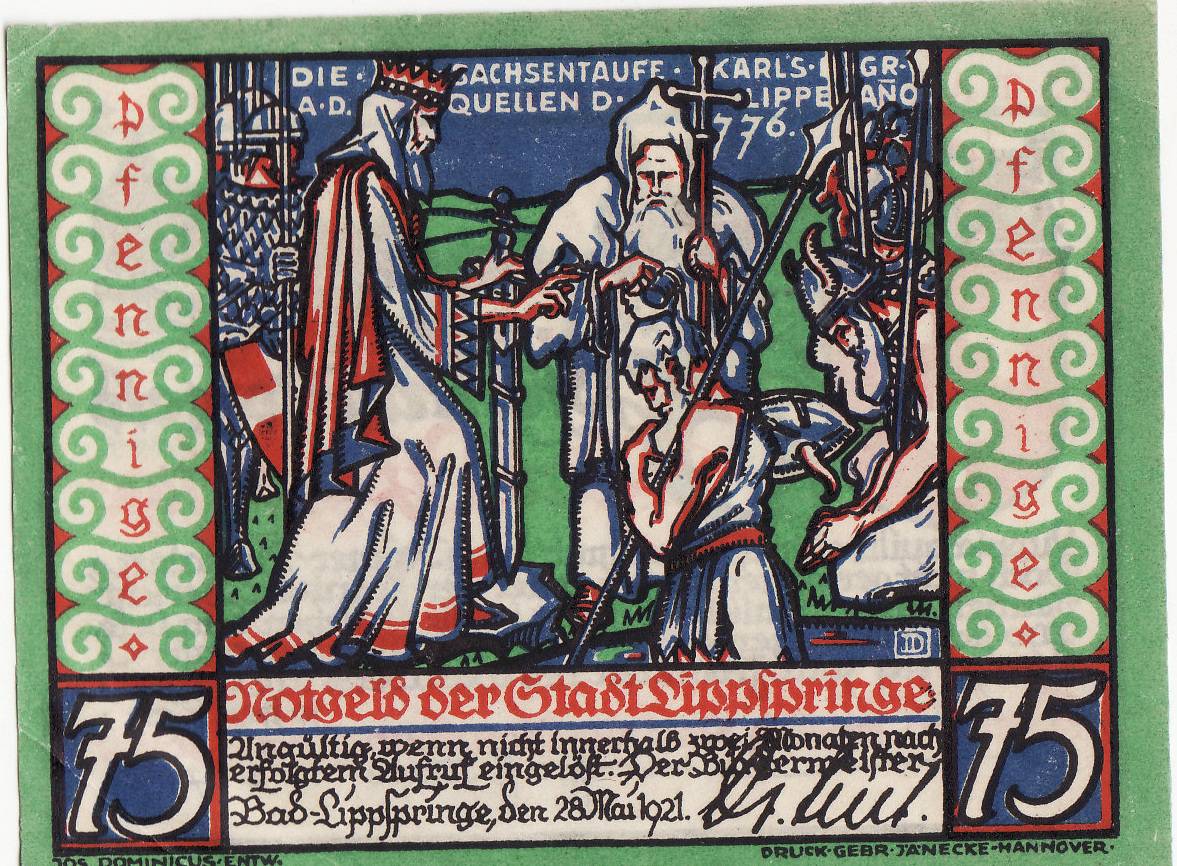 DIE · SACHSENTAUFE · KARL'S · GR·
A·D· QUELLEN D· LIPPE AÑO
776.
Pfennige
Pfennige
JD
Notgeld der Stadt Lippspringe
75
75
Ungültig, wenn nicht innerhalb zwei Monaten nach
erfolgtem Aufruf eingelöst. Der Bürgermeister
Bad-Lippspringe, den 28 Mai 1921.
JOS. DOMINICUS·ENTW.
DRUCK·GEBR·JÄNECKE·HANNOVER·